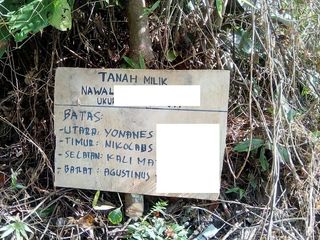 TANAH MILIK
NAWAL
UKU
BATAS:
- UTARA: YOHANES
- TIMUR: NIKOLAUS
- SELATAN: KALI MA
- BARAT: AGUSTINUS